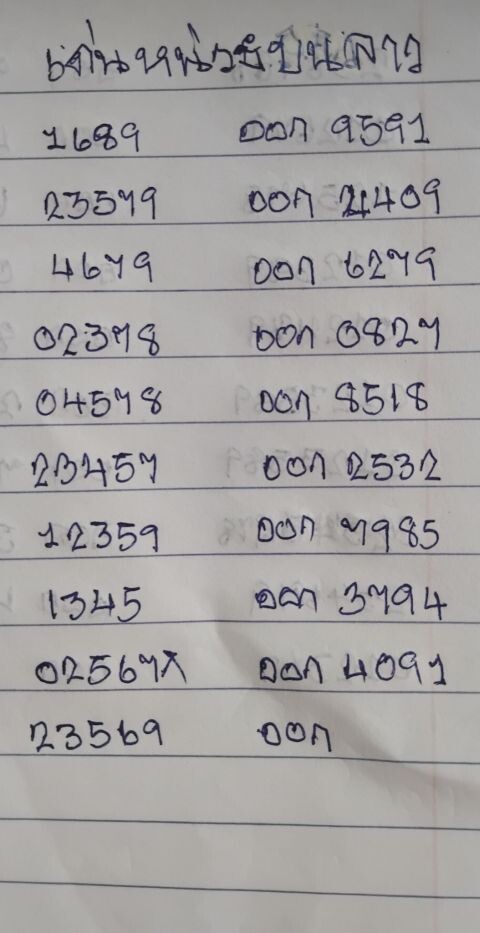 เด่นหน่วยบนลาว
1689 ออก 9591
23579 ออก 2409
4679 ออก 6279
02378 ออก 0827
04578 ออก 8518
23457 ออก 2532
12359 ออก 7985
1345 ออก 3794
02567X ออก 4091
23569 ออก